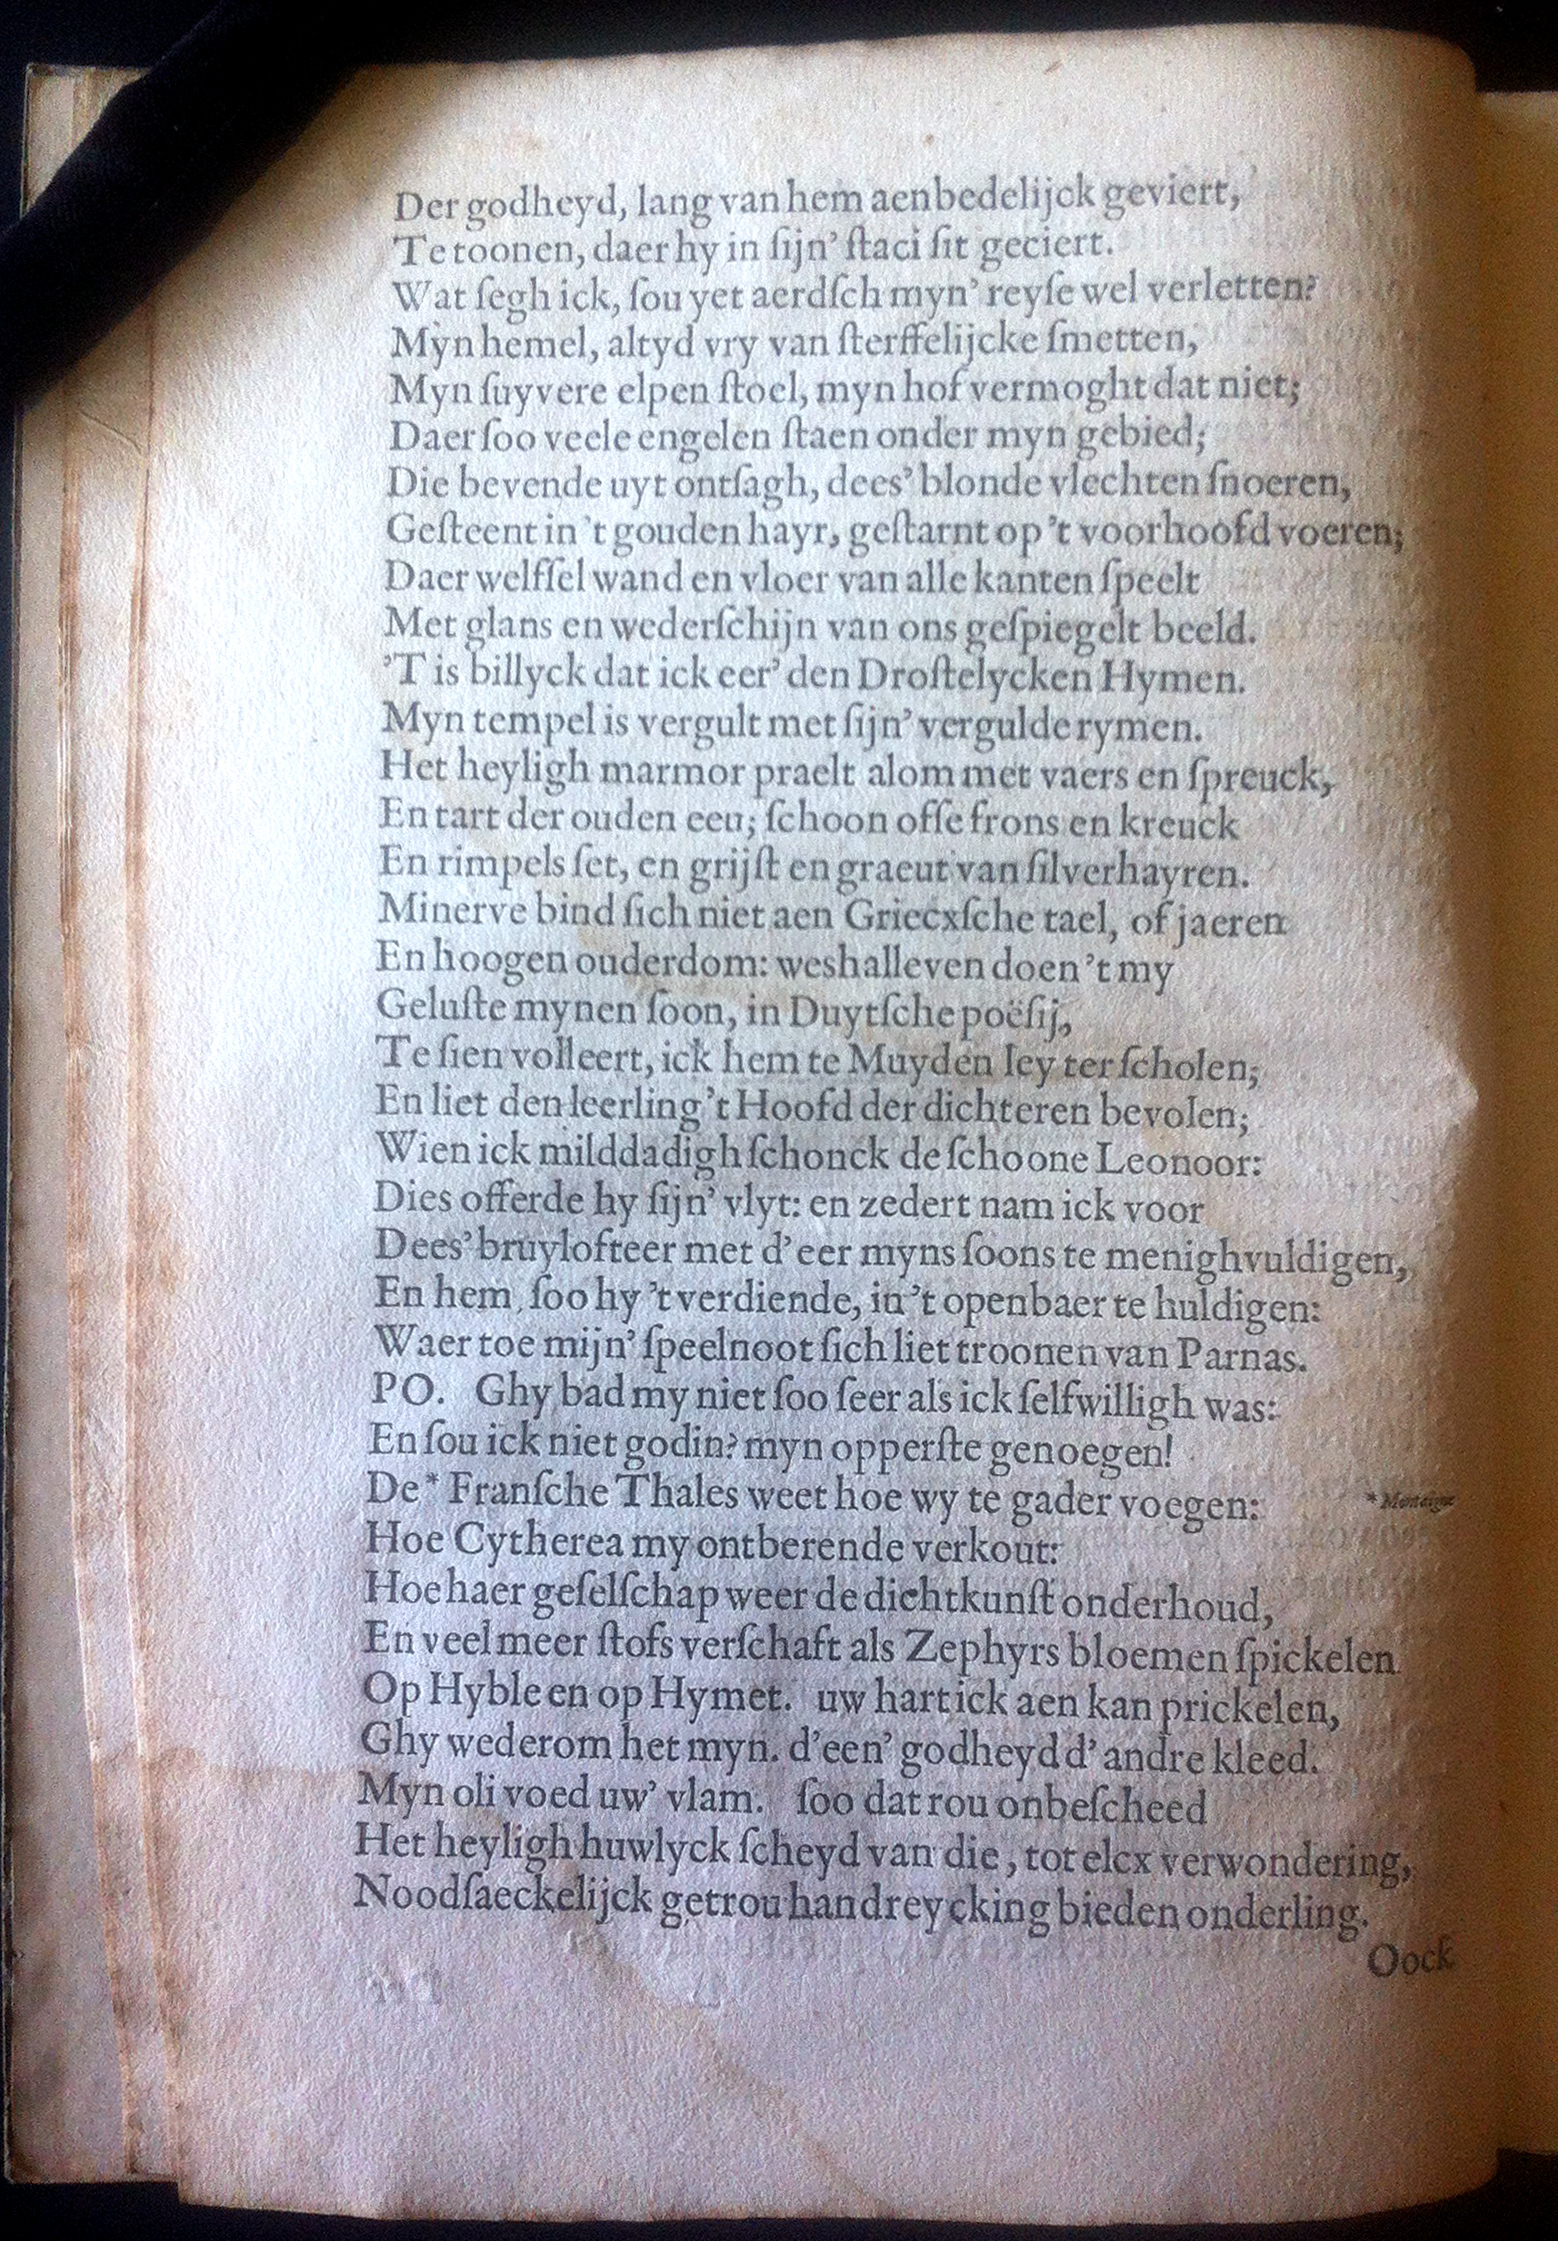 Der godheyd, lang van hem aenbedelijck geviert,
Te toonen, daer hy in ſijn' ſtaci ſit geciert.
Wat ſegh ick, ſou yet aerdſch myn' reyſe wel verletten?
Myn hemel, altyd vry van ſterffelijcke ſmetten,
Myn ſuyvere elpen ſtoel, myn hof vermoght dat niet;
Daer ſoo veele engelen ſtaen onder myn gebied;
Die bevende uyt ontſagh, dees' blonde vlechten ſnoeren,
Geſteent in 't gouden hayr, geſtarnt op 't voorhoofd voeren;
Daer welfſel wand en vloer van alle kanten ſpeelt
Met glans en wederſchijn van ons geſpiegelt beeld.
'T is billyck dat ick eer' den Droſtelycken Hymen.
Myn tempel is vergult met ſijn' vergulde rymen.
Het heyligh marmor praelt alom met vaers en ſpreuck,
En tart der ouden eeu; ſchoon ofſe frons en kreuck
En rimpels ſet, en grijſt en graeut van ſilverhayren.
Minerve bind ſich niet aen Griecxſche tael, of jaeren
En hoogen ouderdom: weshalleven doen 't my
Geluſte mynen ſoon, in Duytſche poëſij,
Te ſien volleert, ick hem te Muyden ley ter ſcholen;
En liet den leerling 't Hoofd der dichteren bevolen;
Wien ick milddadigh ſchonck de ſchoone Leonoor:
Dies offerde hy ſijn' vlyt: en zedert nam ick voor
Dees' bruylofteer met d'eer myns ſoons te menighvuldigen,
En hem, ſoo hy 't verdiende, in 't openbaer te huldigen:
Waer toe mijn' ſpeelnoot ſich liet troonen van Parnas.
PO. Ghy bad my niet ſoo ſeer als ick ſelfwilligh was:
En ſou ick niet godin? myn opperſte genoegen!
De * Franſche Thales weet hoe wy te gader voegen: * Montaigne
Hoe Cytherea my ontberende verkout:
Hoe haer geſelſchap weer de dichtkunſt onderhoud,
En veel meer ſtofs verſchaft als Zephyrs bloemen ſpickelen
Op Hyble en op Hymet. uw hart ick aen kan prickelen,
Ghy wederom het myn. d'een' godheyd d'andre kleed.
Myn oli voed uw' vlam. ſoo dat rou onbeſcheed
Het heyligh huwlyck ſcheyd van die, tot elcx verwondering,
Noodſaeckelijck getrou handreycking bieden onderling.
Oock